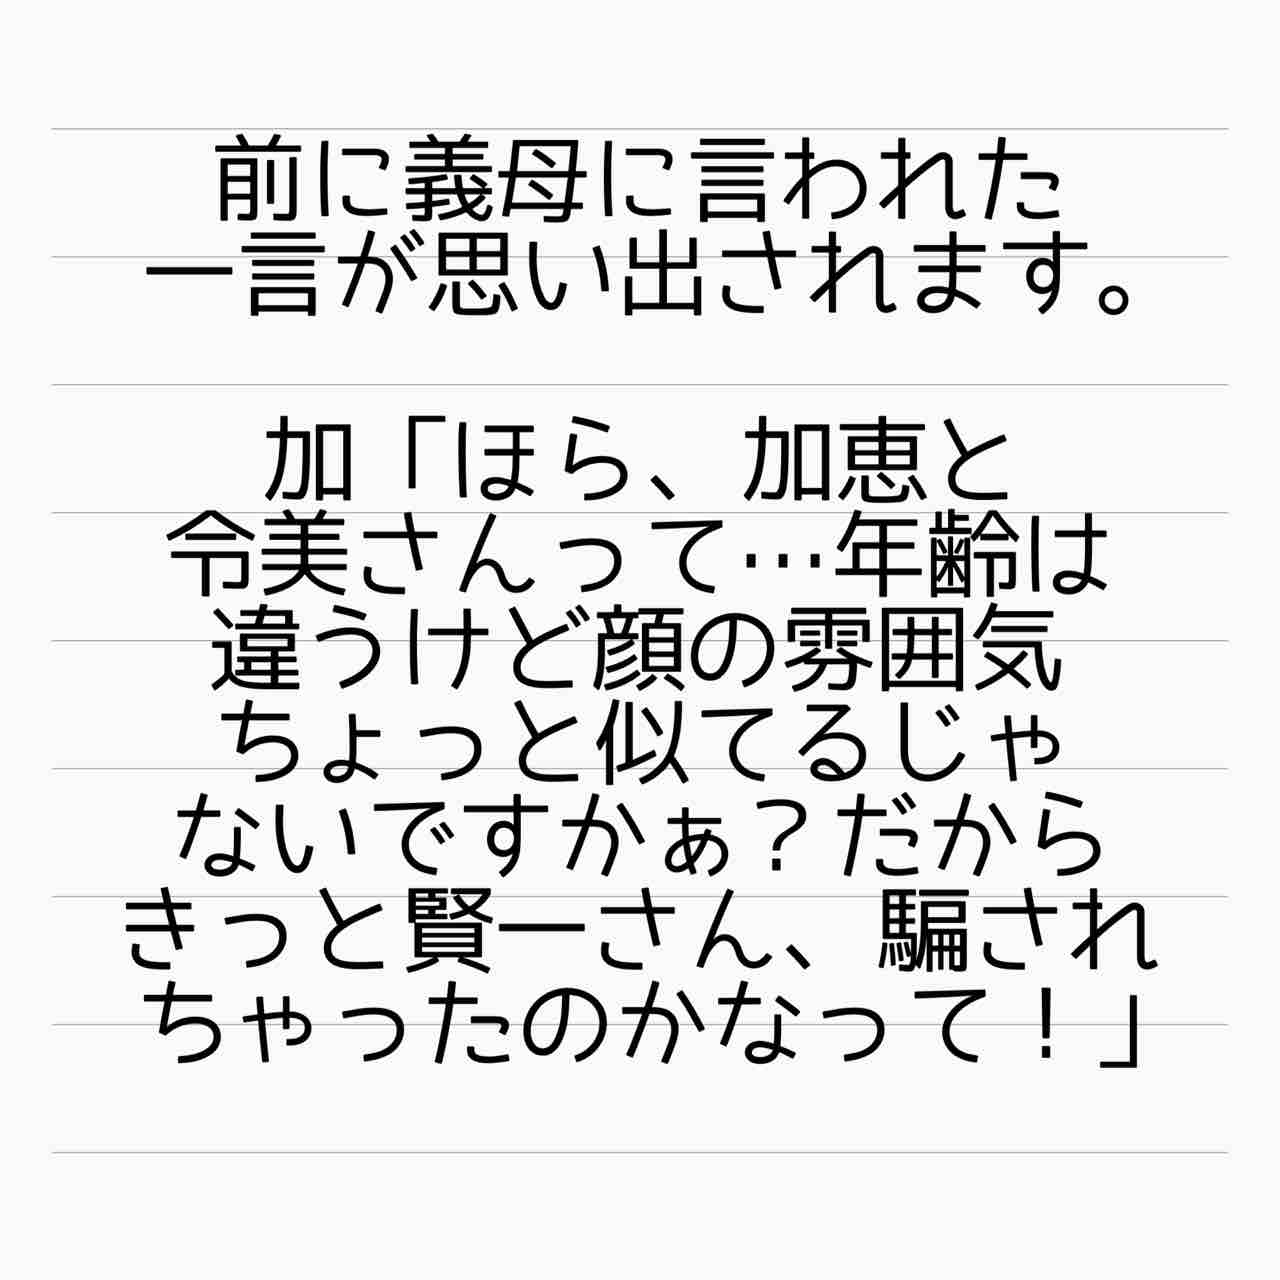 前に義母に言われた
一言が思い出されます。
加「ほら、加恵と
令美さんって…年齢は
違うけど顔の雰囲気
ちょっと似てるじゃ
ないですかぁ？だから
きっと賢一さん、騙され
ちゃったのかなって！」